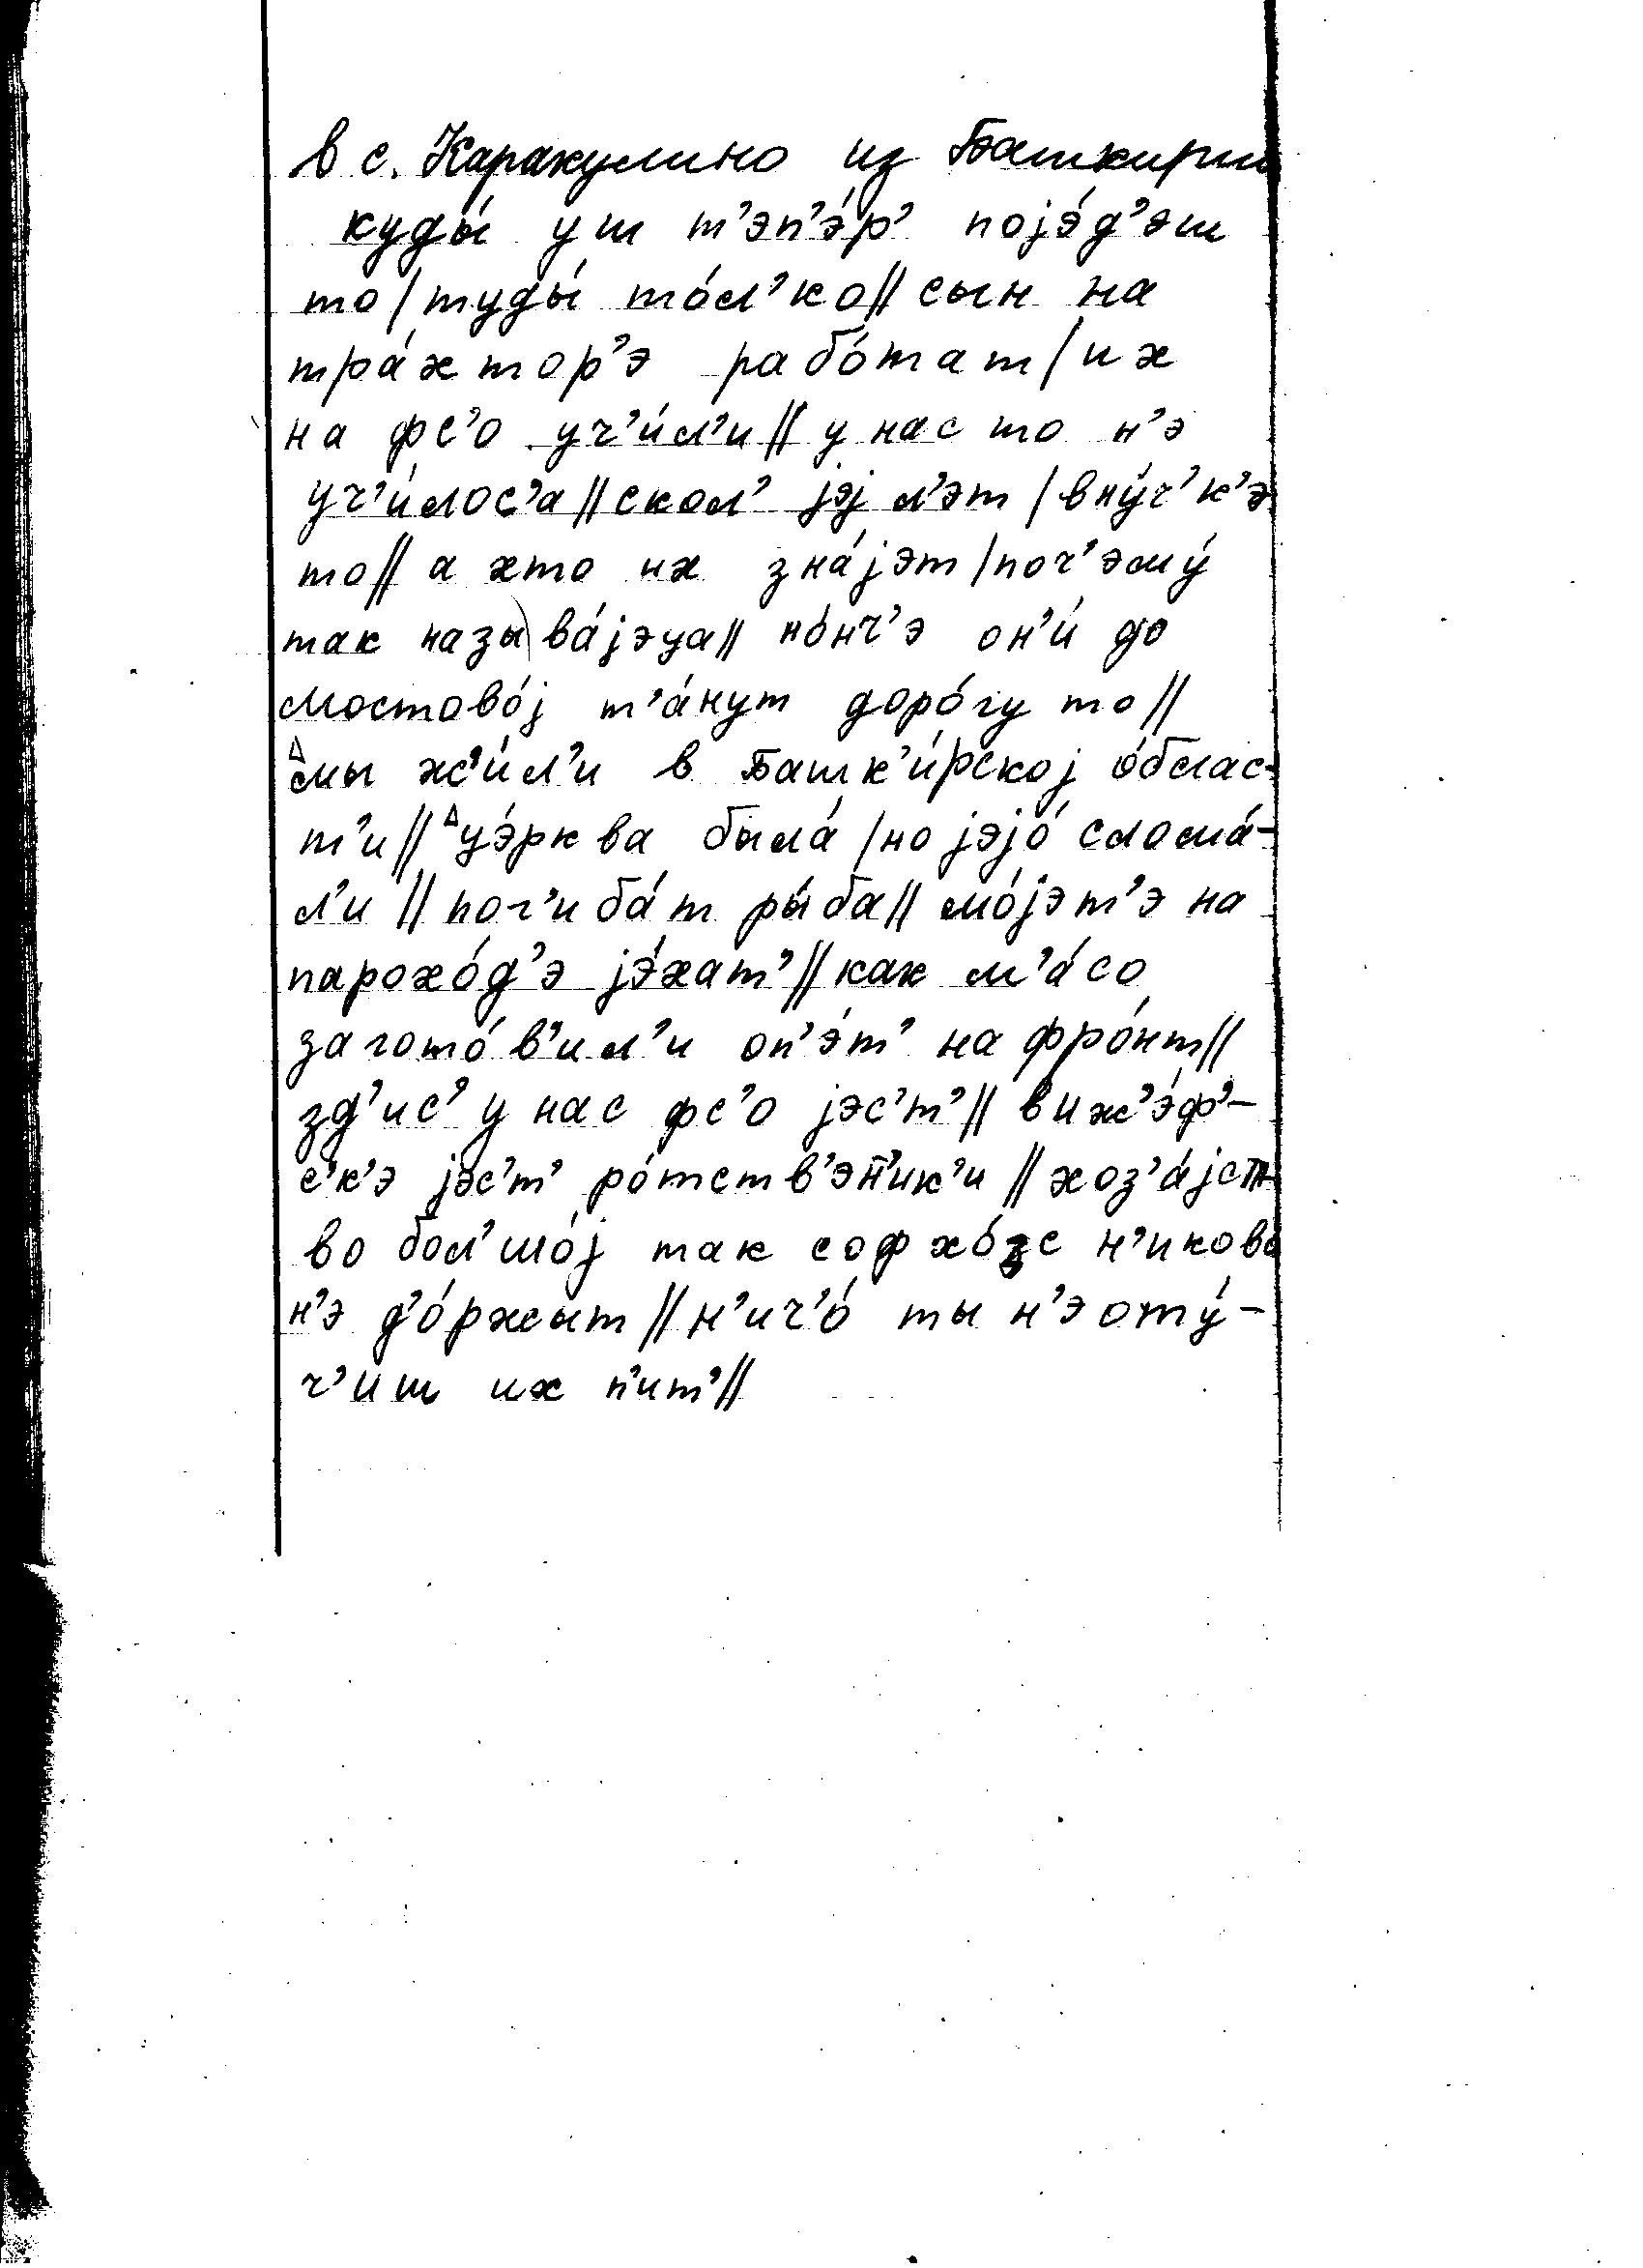 в с. Каракулино из Башкирии
куды́ уш т'эп'э́р' појэ́д'эш
то/туды́ то́л'ко// сын на
тра́хтор'э рабо́тат/их
на фс'о уч'и́л'и// у нас то н'э
уч'и́лос'а//скол' јэј л'эт/вну́ч'к'э
то// а хто их зна́јэт/поч'эму́
так называ́јэца// но́нч'э он'и́ до
мостово́ј т'а́нут доро́гу то//
∆мы ж'и́л'и в Башк'и́рској о́блас-
т'и//∆цэ́рква была́/но јэјо́ слома́-
л'и//пог'иба́т ры́ба// мо́јэт'э на
парохо́д'э јэ́хат'//как м'а́со
загото́в'ил'и оп'э́т' на фро́нт//
зд'ис' у нас фс'о јэс'т'// в иж'э́ф'-
с'к'э јэс'т' ро́тств'эн̄'ик'и//хоз'а́јст-
во бол'шо́ј так софхо́зс н'иково
н'э д'о́ржыт//н'ич'о́ ты н'э оту́-
ч'иш их п'ит'//